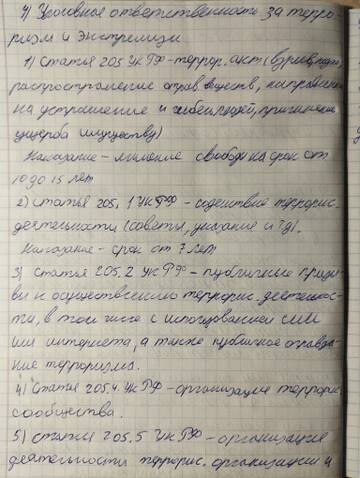 4) Уголовное ответственность за терро-
ризм и экстремизм
1) Статья 205 УК РФ - террор. акт (взрыв,
распространение отрав. веществ, направлен
на устрашение и гибель людей, причинение
ущерба имуществу)
Наказание - лишение свободы на срок от
10 до 15 лет
2) Статья 205.1 УК РФ - содействие террорис.
деятельности (советы, указание и тд).
Наказание - срок от 7 лет
3) Статья 205.2 УК РФ - публичные призы-
вы к осуществлению террорис. деятельнос-
ти, в том числе с использованием СМИ
или интернета, а также публичное оправда-
ние терроризма.
4) Статья 205.4 УК РФ - организация террорис.
сообщества.
5) Статья 205.5 УК РФ - организация
деятельности террорис. организации и